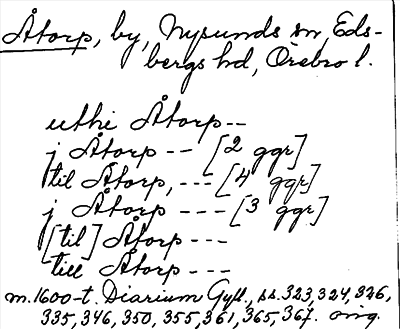 Åtorp, by, Nysunds sn, Eds-
bergs hd, Örebro l.
uthi Åtorp --
j Åtorp -- [2 ggr]
til Åtorp, --- [4 ggr]
j Åtorp --- [3 ggr]
[til] Åtorp ---
till Åtorp ---
m. 1600-t. Diarium Gyll., ss. 323, 324, 326,
335, 346, 350, 355, 361, 365, 367. orig.